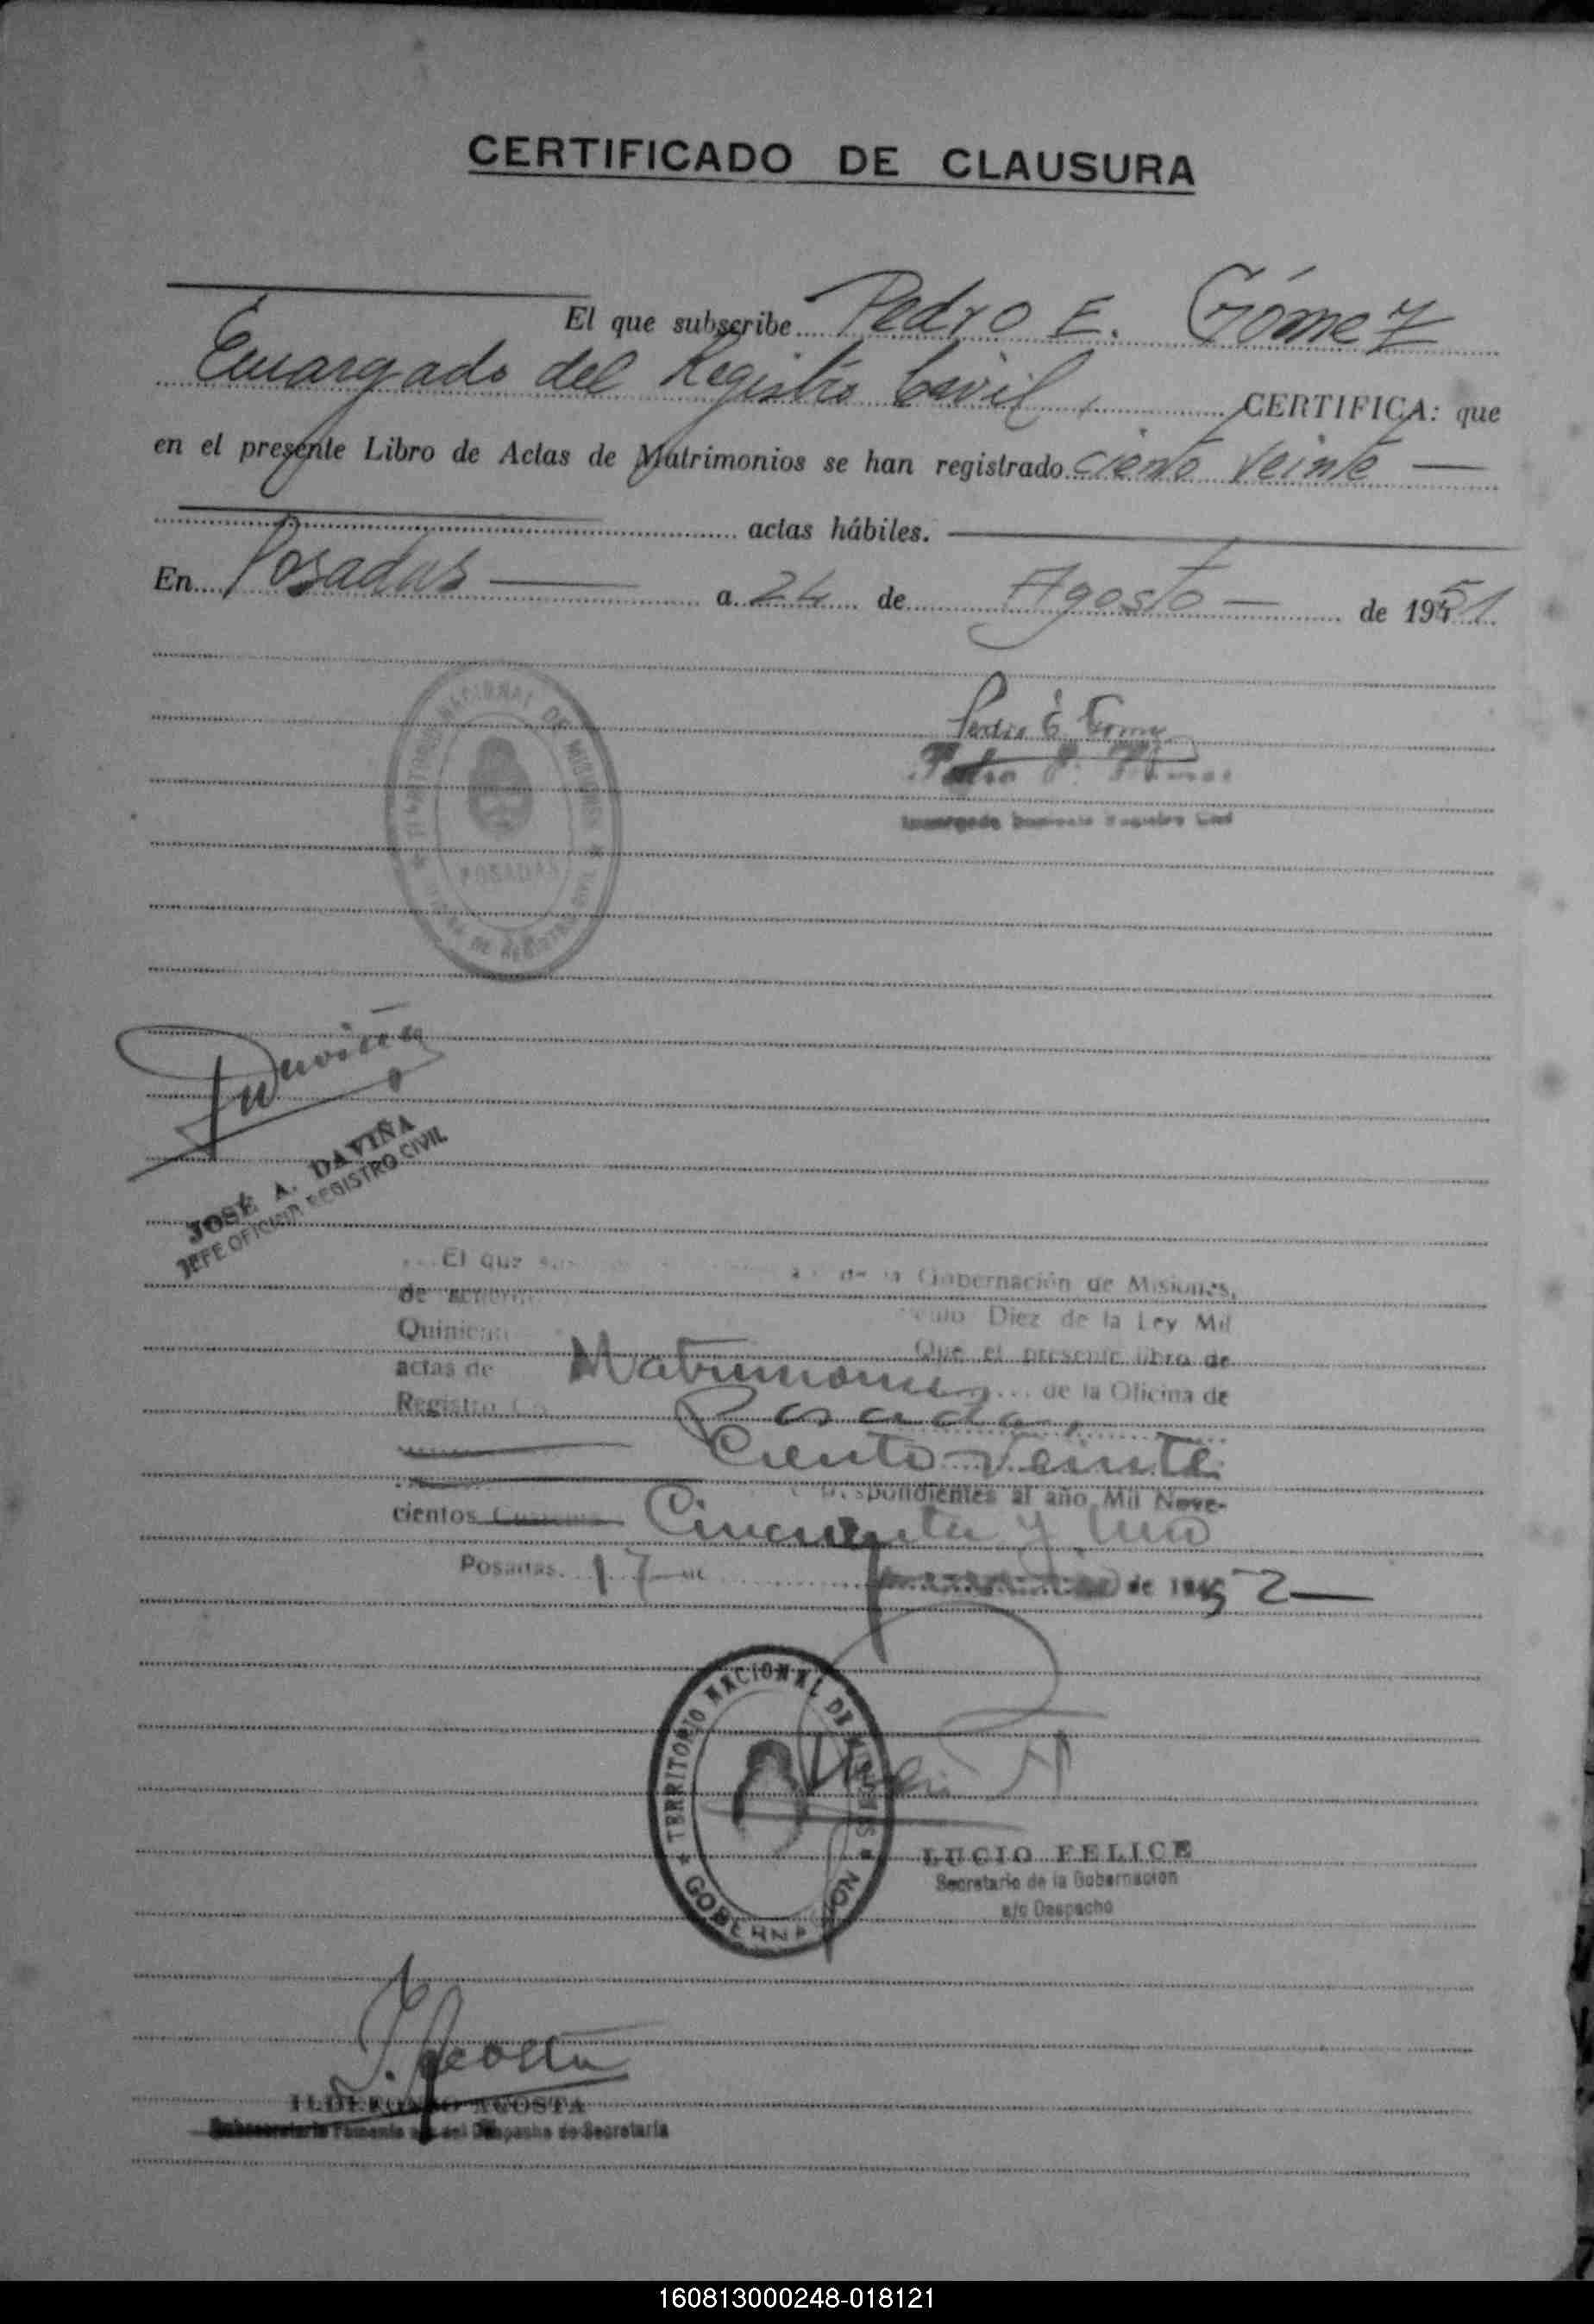 CERTIFICADO DE CLAUSURA
El que subscribe Pedro E. Gómez
Encargado del Registro Civil, CERTIFICA: que
en el presente Libro de Actas de Matrimonios se han registrado ciento veinte
actas hábiles.
En Posadas a 24 de Agosto de 1951
TERRITORIO NACIONAL DE MISIONES
POSADAS
DE REGISTRO CIVIL
Pedro E Gomez
Daviña
JOSÉ A. DAVIÑA
JEFE OFICINA REGISTRO CIVIL
El que de la Gobernación de Misiones,
de
Diez de la Ley Mil
Que el presente libro de
actas de Matrimonios de la Oficina de
Registro Posadas,
Ciento Veinte
correspondientes al año Mil Nove-
cientos Cincuenta y Uno
Posadas, 17 de 1952
TERRITORIO NACIONAL DE MISIONES
GOBERNACION
LUCIO FELICE
Secretario de la Gobernación
a/c Despacho
I. Acosta
ILDEFONSO ACOSTA
Subsecretario Fomento del Despacho de Secretaría
160813000248-018121